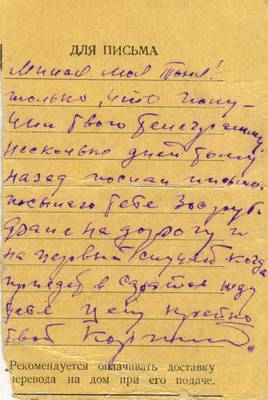 ДЛЯ ПИСЬМА
Милая моя Тоня!
только, что полу-
чил твою телеграмму.
несколько дней тому
назад послал письмо.
тебе руб.
на дорогу и
на первый случай когда
приедешь в Саратов жду
тебя целу крепко
твой
Рекомендуется оплачивать доставку
перевода на дом при его подаче.